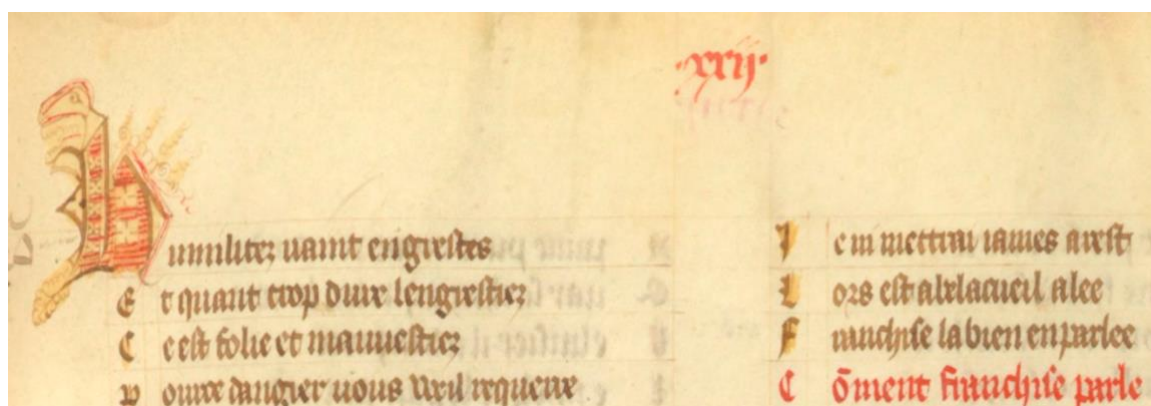 .xxij.
Humilitez vaint engrestes
Et quant trop dure lengrestiez
Ce est folie et mauuestiez
Pour ce dangier uous vueil requerre
Je ni mettrai iames arest
Lors est a belacueil alee
Franchise la bien en parlee
Cōment franchise parle